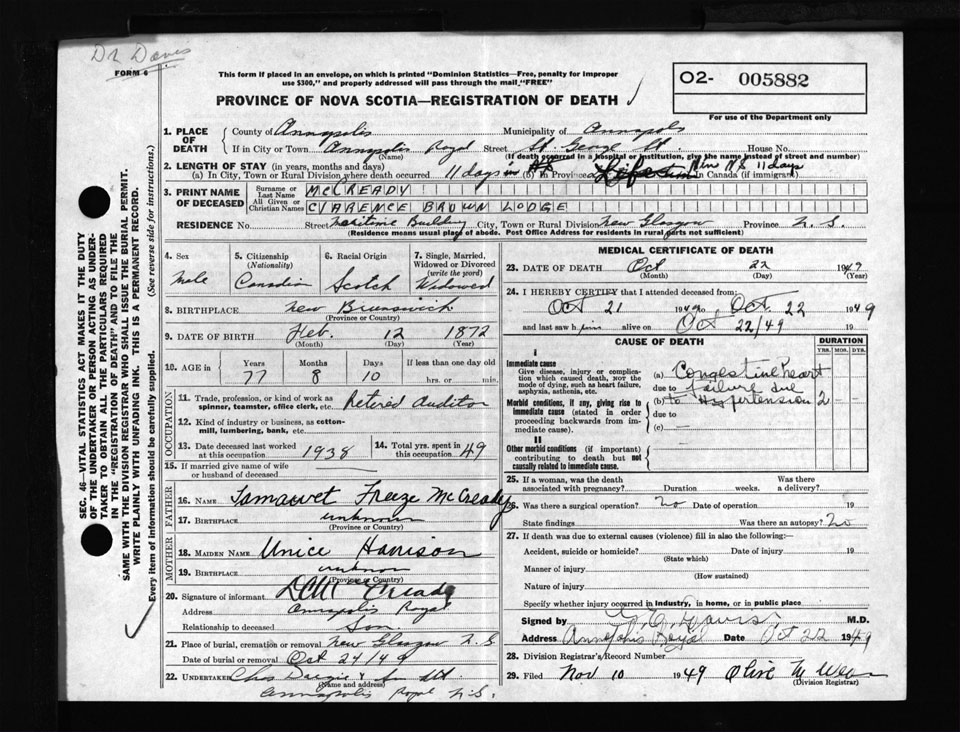 Dr Davis
FORM 6
This form if placed in an envelope, on which is printed "Dominion Statistics—Free, penalty for improper
use $300," and properly addressed will pass through the mail "FREE"
PROVINCE OF NOVA SCOTIA—REGISTRATION OF DEATH
O2- 005882
For use of the Department only
1. PLACE OF DEATH County of Annapolis Municipality of Annapolis
If in City or Town Annapolis Royal Street St. George St. House No.
(Name) (If death occurred in a hospital or institution, give the name instead of street and number)
2. LENGTH OF STAY (in years, months and days)
(a) In City, Town or Rural Division where death occurred 11 days (b) In Province Life in Canada (if immigrant) 11 days
3. PRINT NAME OF DECEASED Surname or Last Name MCCREADY
All Given or Christian Names CLARENCE BROWN LODGE
RESIDENCE No. Street Maritime Building City, Town or Rural Division New Glasgow Province N.S.
(Residence means usual place of abode. Post Office Address for residents in rural parts not sufficient)
4. Sex Male
5. Citizenship (Nationality) Canadian
6. Racial Origin Scotch
7. Single, Married, Widowed or Divorced (write the word) Widowed
8. BIRTHPLACE New Brunswick
(Province or Country)
9. DATE OF BIRTH Feb. 12 1872
(Month) (Day) (Year)
10. AGE in Years 77 Months 8 Days 10 If less than one day old hrs. or min.
OCCUPATION
11. Trade, profession, or kind of work as spinner, teamster, office clerk, etc. Retired Auditor
12. Kind of industry or business, as cotton-mill, lumbering, bank, etc.
13. Date deceased last worked at this occupation 1938
14. Total yrs. spent in this occupation 49
15. If married give name of wife or husband of deceased
FATHER
16. NAME Freeze McCready
17. BIRTHPLACE unknown
(Province or Country)
MOTHER
18. MAIDEN NAME Unice Harrison
19. BIRTHPLACE unknown
(Province or Country)
20. Signature of informant
Address Annapolis Royal
Relationship to deceased Son
21. Place of burial, cremation or removal New Glasgow N.S
Date of burial or removal Oct 24/49
22. UNDERTAKER Chas
(Name and address)
Annapolis Royal N.S.
MEDICAL CERTIFICATE OF DEATH
23. DATE OF DEATH Oct 22 1949
(Month) (Day) (Year)
24. I HEREBY CERTIFY that I attended deceased from:
Oct 21 1949 to Oct. 22 1949
and last saw him alive on Oct 22/49 19
CAUSE OF DEATH
DURATION
YRS. MOS. DYS.
I
Immediate cause
Give disease, injury or complication which caused death, NOT the mode of dying, such as heart failure, asphyxia, asthenia, etc.
Morbid conditions, if any, giving rise to immediate cause (stated in order proceeding backwards from immediate cause).
II
Other morbid conditions (if important) contributing to death but not causally related to immediate cause.
(a) Congestive heart
due to failure due
(b) to Hypertension 2 — —
due to
(c) —
25. If a woman, was the death associated with pregnancy? Duration weeks. Was there a delivery?
26. Was there a surgical operation? No Date of operation 19
State findings Was there an autopsy? No
27. If death was due to external causes (violence) fill in also the following:—
Accident, suicide or homicide? Date of injury 19
(State which)
Manner of injury
(How sustained)
Nature of injury
Specify whether injury occurred in industry, in home, or in public place
Signed by Davis, M.D.
Address Annapolis Royal Date Oct 22 1949
28. Division Registrar's Record Number
29. Filed Nov 10 1949 Olive M
(Division Registrar)
SEC. 46—VITAL STATISTICS ACT MAKES IT THE DUTY
OF THE UNDERTAKER OR PERSON ACTING AS UNDER-
TAKER TO OBTAIN ALL THE PARTICULARS REQUIRED
IN THE "REGISTRATION OF DEATH" AND TO FILE THE
SAME WITH THE DIVISION REGISTRAR WHO SHALL ISSUE THE BURIAL PERMIT.
WRITE PLAINLY WITH UNFADING INK. THIS IS A PERMANENT RECORD.
Every item of information should be carefully supplied. (See reverse side for instructions.)